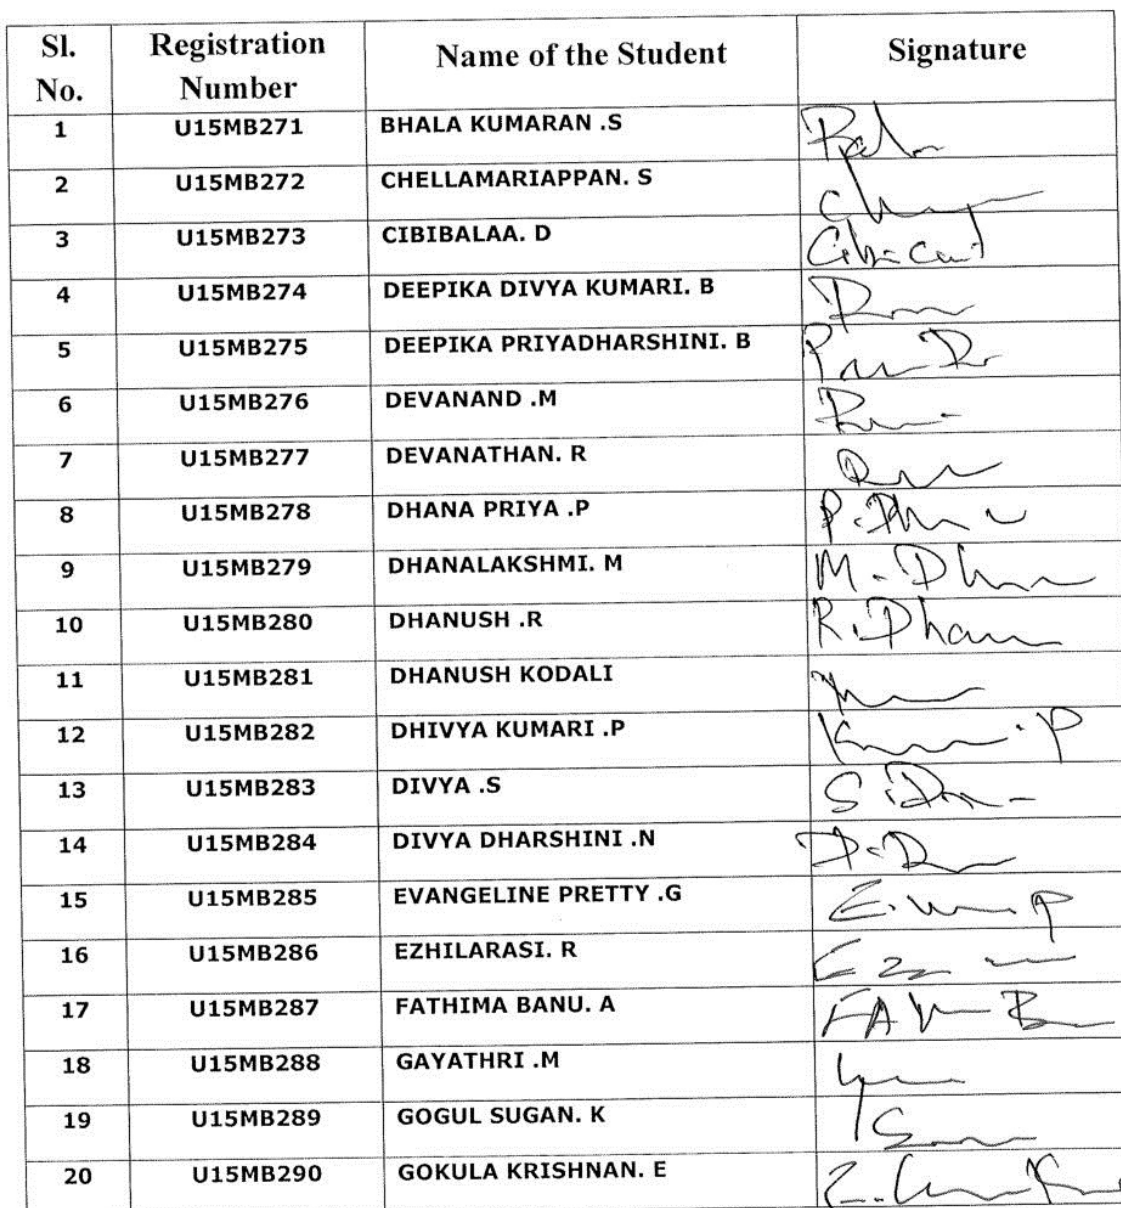 Sl. No. Registration Number Name of the Student Signature
1 U15MB271 BHALA KUMARAN .S
2 U15MB272 CHELLAMARIAPPAN. S
3 U15MB273 CIBIBALAA. D
4 U15MB274 DEEPIKA DIVYA KUMARI. B
5 U15MB275 DEEPIKA PRIYADHARSHINI. B
6 U15MB276 DEVANAND .M
7 U15MB277 DEVANATHAN. R
8 U15MB278 DHANA PRIYA .P
9 U15MB279 DHANALAKSHMI. M
10 U15MB280 DHANUSH .R
11 U15MB281 DHANUSH KODALI
12 U15MB282 DHIVYA KUMARI .P
13 U15MB283 DIVYA .S
14 U15MB284 DIVYA DHARSHINI .N
15 U15MB285 EVANGELINE PRETTY .G
16 U15MB286 EZHILARASI. R
17 U15MB287 FATHIMA BANU. A
18 U15MB288 GAYATHRI .M
19 U15MB289 GOGUL SUGAN. K
20 U15MB290 GOKULA KRISHNAN. E